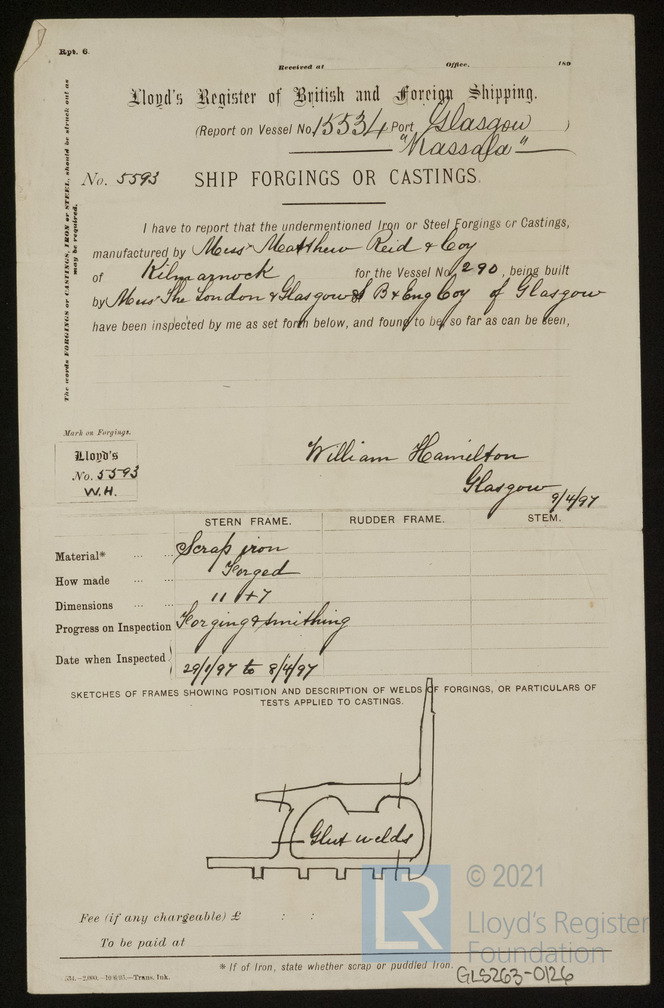 Rpt. 6.
Received at Office, 189
Lloyd's Register of British and Foreign Shipping.
(Report on Vessel No. 15534 Port Glasgow )
"Massala"
No. 5593 SHIP FORGINGS OR CASTINGS.
The words FORGINGS or CASTINGS, IRON or STEEL, should be struck out as
may be required.
I have to report that the undermentioned Iron or Steel Forgings or Castings,
manufactured by Messrs Matthew Reid & Coy
of Kilmarnock for the Vessel No. 290, being built
by Messrs The London & Glasgow S B & Eng Coy of Glasgow
have been inspected by me as set forth below, and found to be, so far as can be seen,
Mark on Forgings.
Lloyd's
No. 5593
W.H.
William Hamilton
Glasgow 9/4/97
STERN FRAME. RUDDER FRAME. STEM.
Material* ... ... Scrap iron
How made ... ... Forged
Dimensions ... ... 11 + 7
Progress on Inspection Forging & smithing
Date when Inspected 29/1/97 to 8/4/97
SKETCHES OF FRAMES SHOWING POSITION AND DESCRIPTION OF WELDS OF FORGINGS, OR PARTICULARS OF
TESTS APPLIED TO CASTINGS.
Glut welds
Fee (if any chargeable) £ : :
To be paid at
* If of Iron, state whether scrap or puddled Iron.
Trans. Ink.
GLS263-0126
LR
© 2021
Lloyd's Register
Foundation